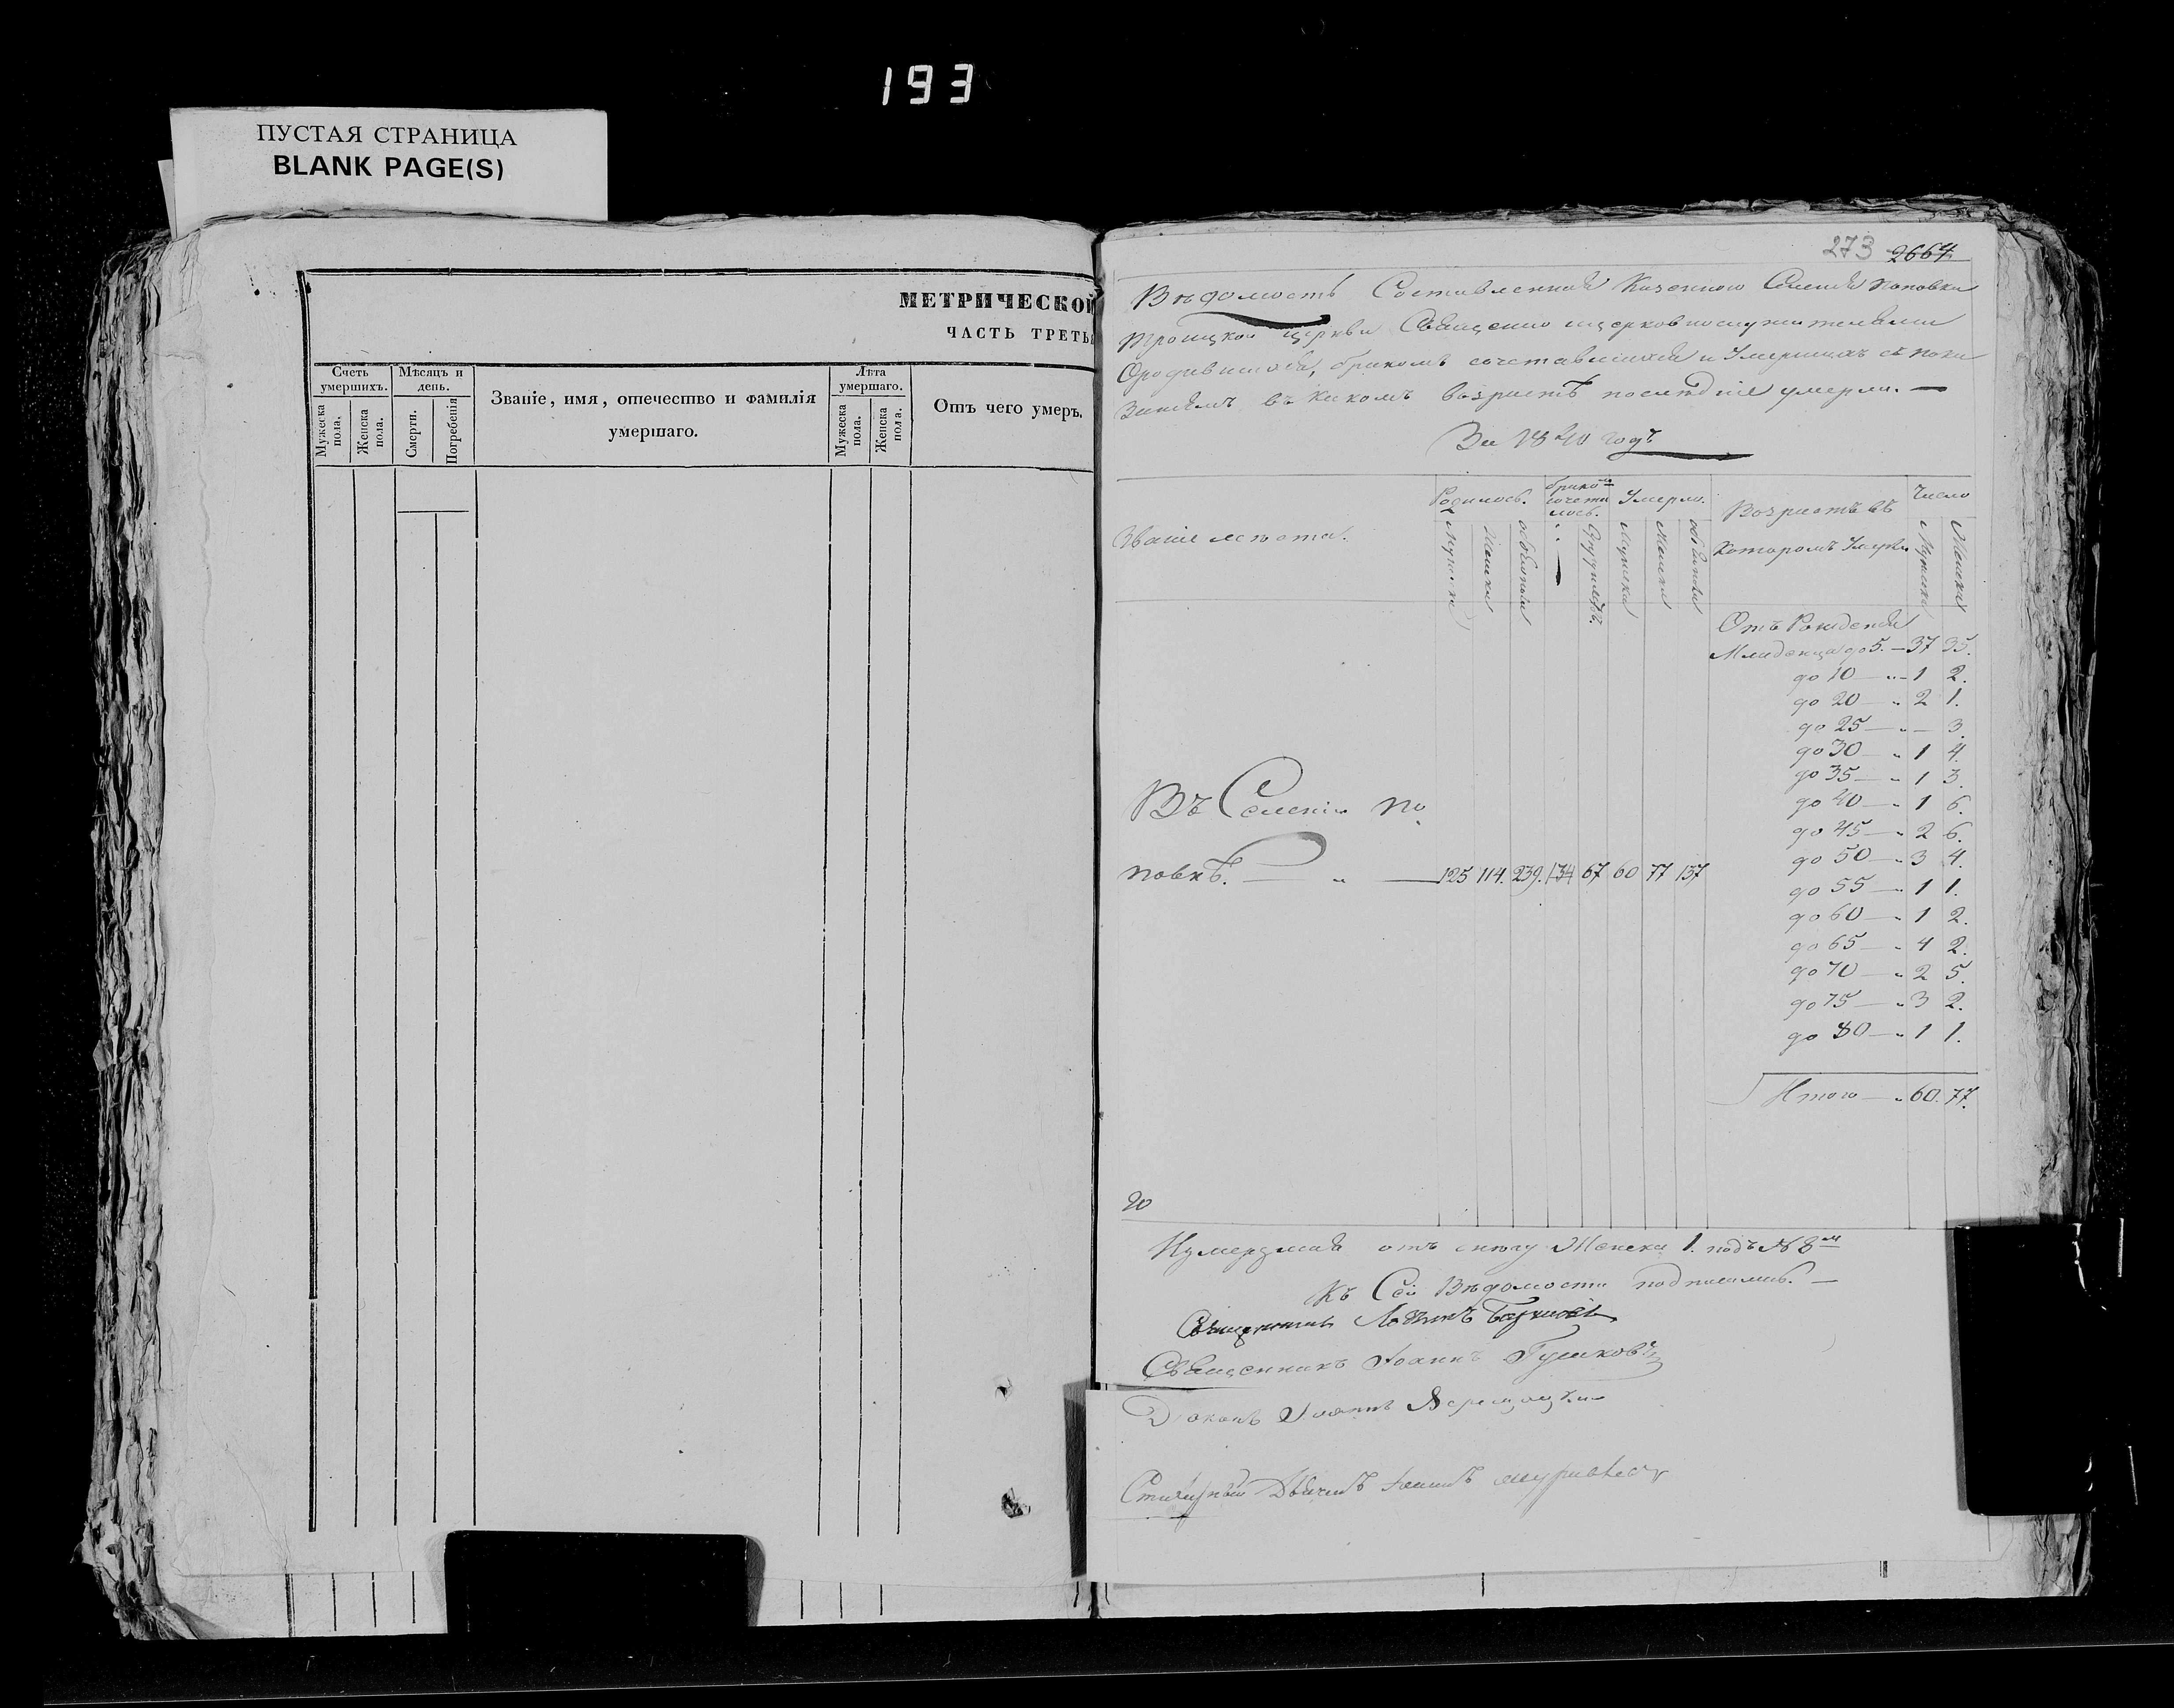 193
ПУСТАЯ СТРАНИЦА
BLANK PAGE(S)
МЕТРИЧЕСКОЙ
ЧАСТЬ ТРЕТЬ
Счетъ умершихъ.
Мужеска пола.
Женска пола.
Мѣсяцъ и день.
Смерти.
Погребенія
Званіе, имя, отечество и фамилія
умершаго.
Лѣта умершаго.
Мужеска пола.
Женска пола.
Отъ чего умеръ,
273 2664
Вѣдомость Составленная Казенного Селенія Поповки
Троицкой Церкви Священно и церковнослужителями
Ородившихся, бракомъ сочетавшихся и Умершихъ съ пока
Заніемъ въ какомъ возрастѣ последніе умерли. —
За 1840 годъ
Званіе места.
Родилось.
Мужеска
Женска
обоегополу
бракомъ сочета лось.
Умерло.
Мужеска
Женска
Возрастъ въ
Которомъ Умерли
Число
Мужска
Женска
Отъ Рожденія
Младенца до 5. — 37 35.
до 10 — „ — 1 2.
до 20 — „ 2 1.
до 25 — „ — 3.
до 30 — „ 1 4.
до 35 — „ 1 3.
до 40 — „ 1 6.
до 45 — „ 2 6.
до 50 — „ 3 4.
до 55 — „ 1 1.
до 60 — „ 1 2.
до 65 — „ 4 2.
до 70 — „ 2 5.
до 75 — „ 3 2.
до 80 — „ 1 1.
Итого — „ 60. 77.
Въ Селеніи По
повкѣ. — „ — 125 114. 239. 134 67 60 77 137
20
отъ Женска 1. подъ № 8м
Къ Сей Вѣдомости подписались. —
Священникъ
Священникъ Іоаннъ Гушковъ
Діаконъ Іоаннъ
Стихарный Дьячекъ